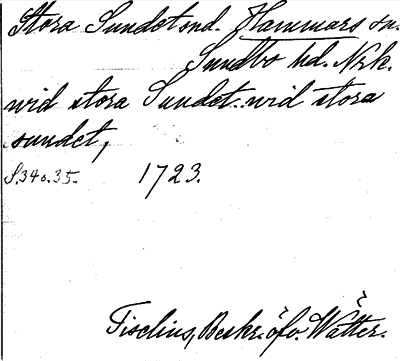 Stora Sundet snd. Hammars sn.
Sundbo hd. Nrk.
wid stora Sundet.. wid stora
sundet,
S.34 o. 35. 1723.
Tiselius, Beskr. öfv. Wätter.